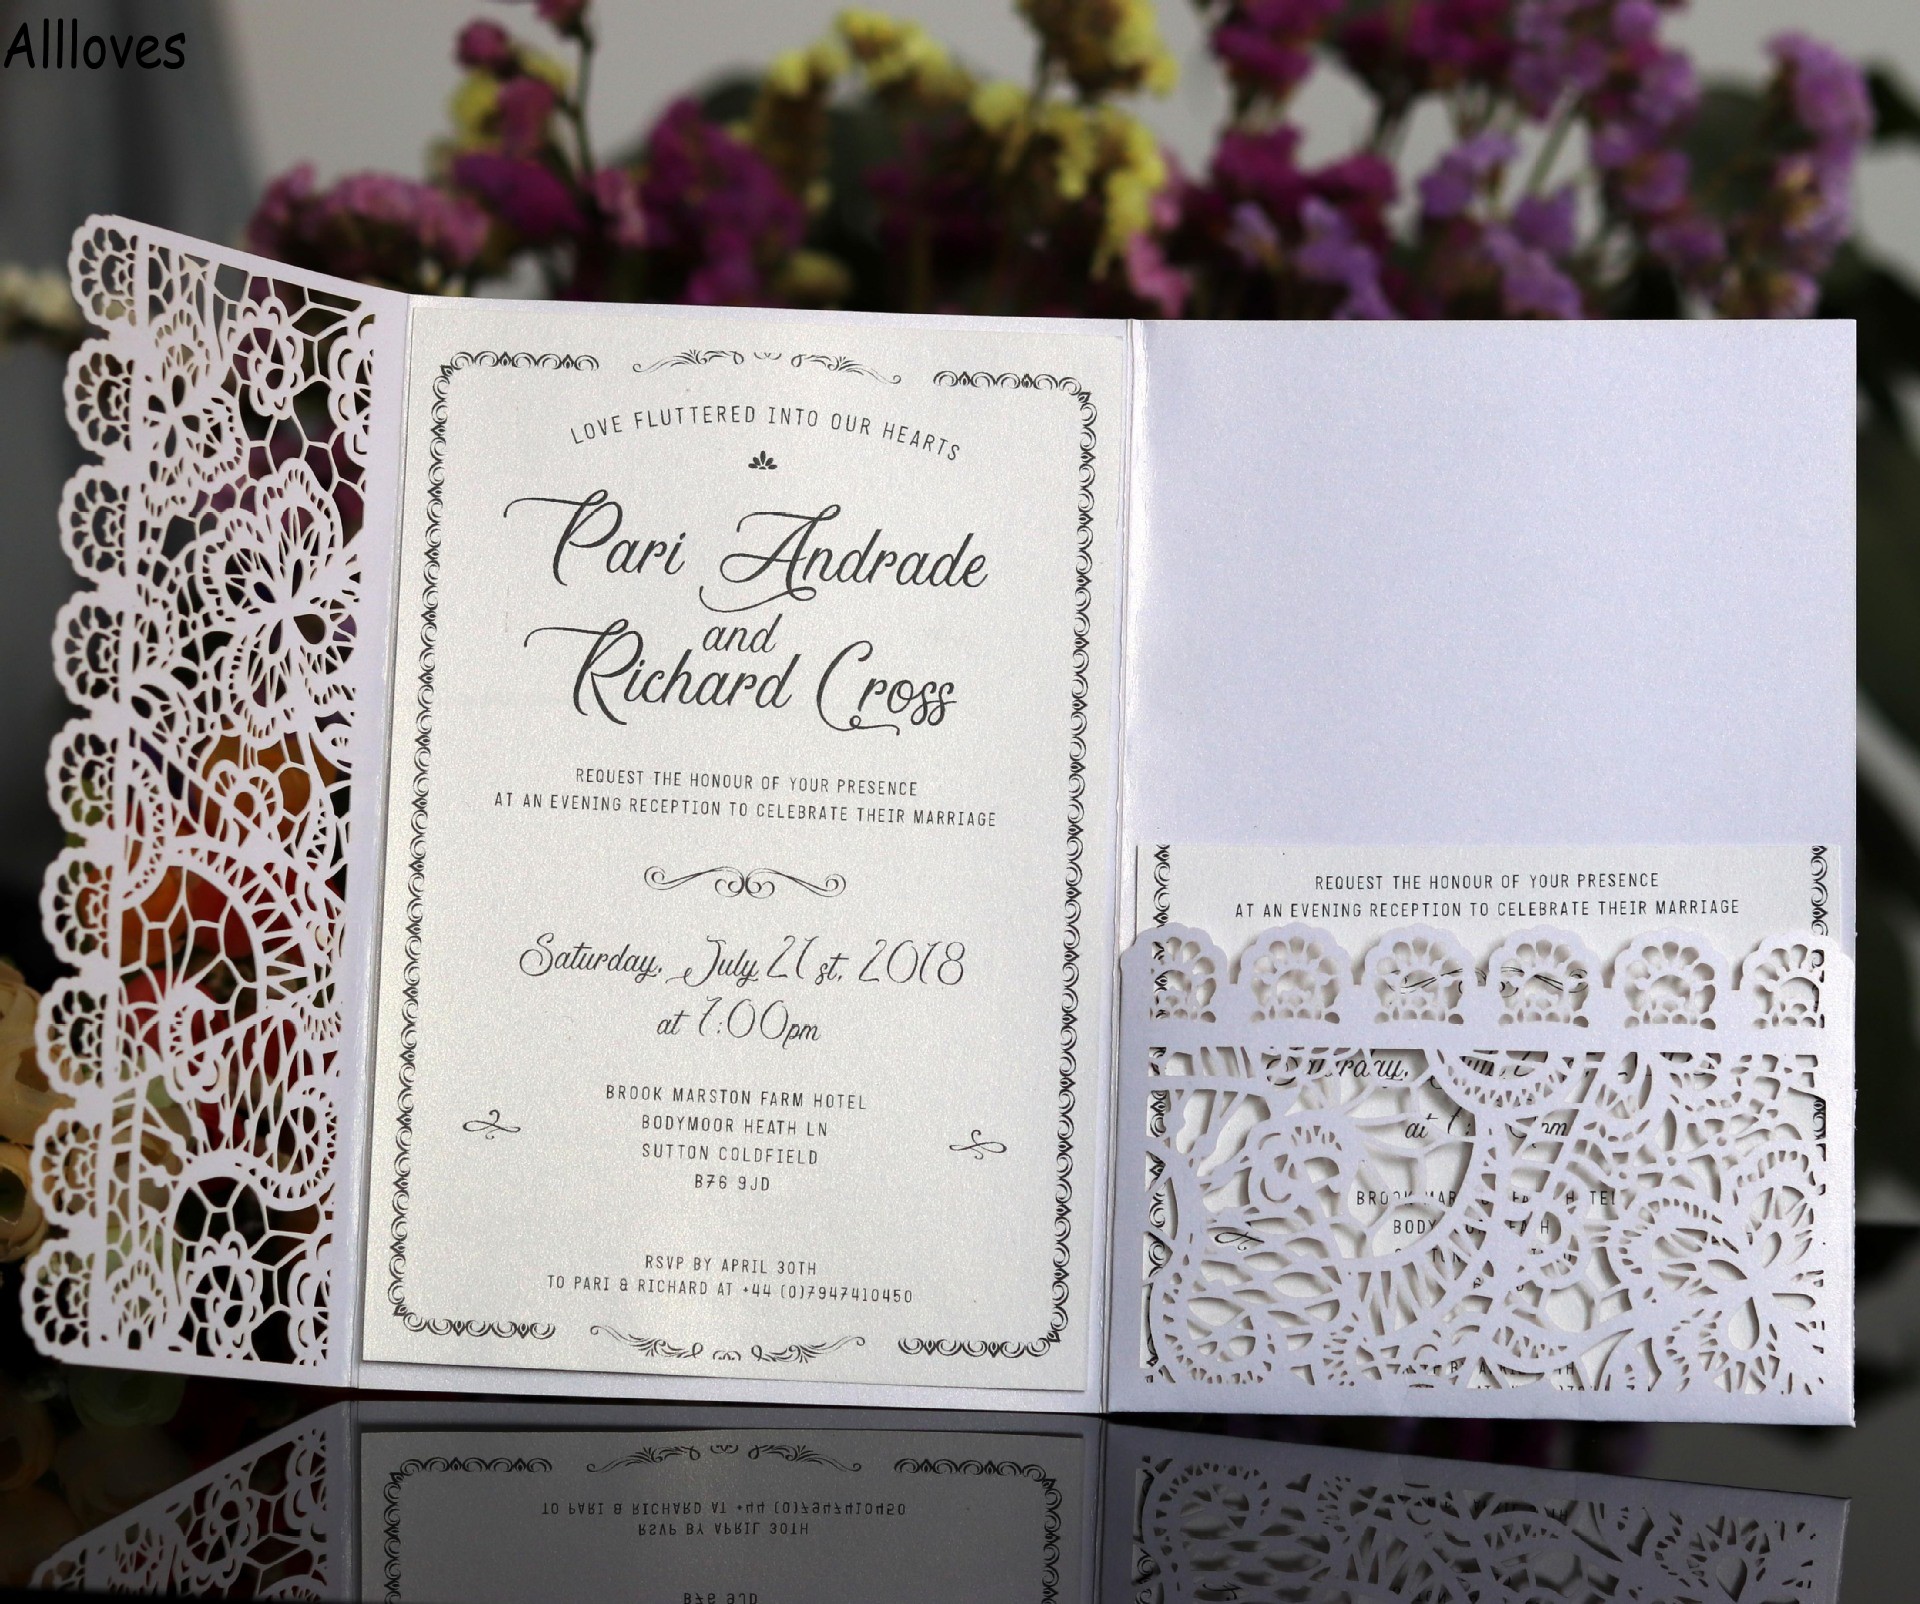 Allloves
LOVE FLUTTERED INTO OUR HEARTS
Pari Andrade
and
Richard Cross
REQUEST THE HONOUR OF YOUR PRESENCE
AT AN EVENING RECEPTION TO CELEBRATE THEIR MARRIAGE
Saturday, July 21st, 2018
at 1:00pm
BROOK MARSTON FARM HOTEL
BODYMOOR HEATH LN
SUTTON COLDFIELD
B76 9JD
RSVP BY APRIL 30TH
TO PARI & RICHARD AT +44 (0)7947410450
REQUEST THE HONOUR OF YOUR PRESENCE
AT AN EVENING RECEPTION TO CELEBRATE THEIR MARRIAGE